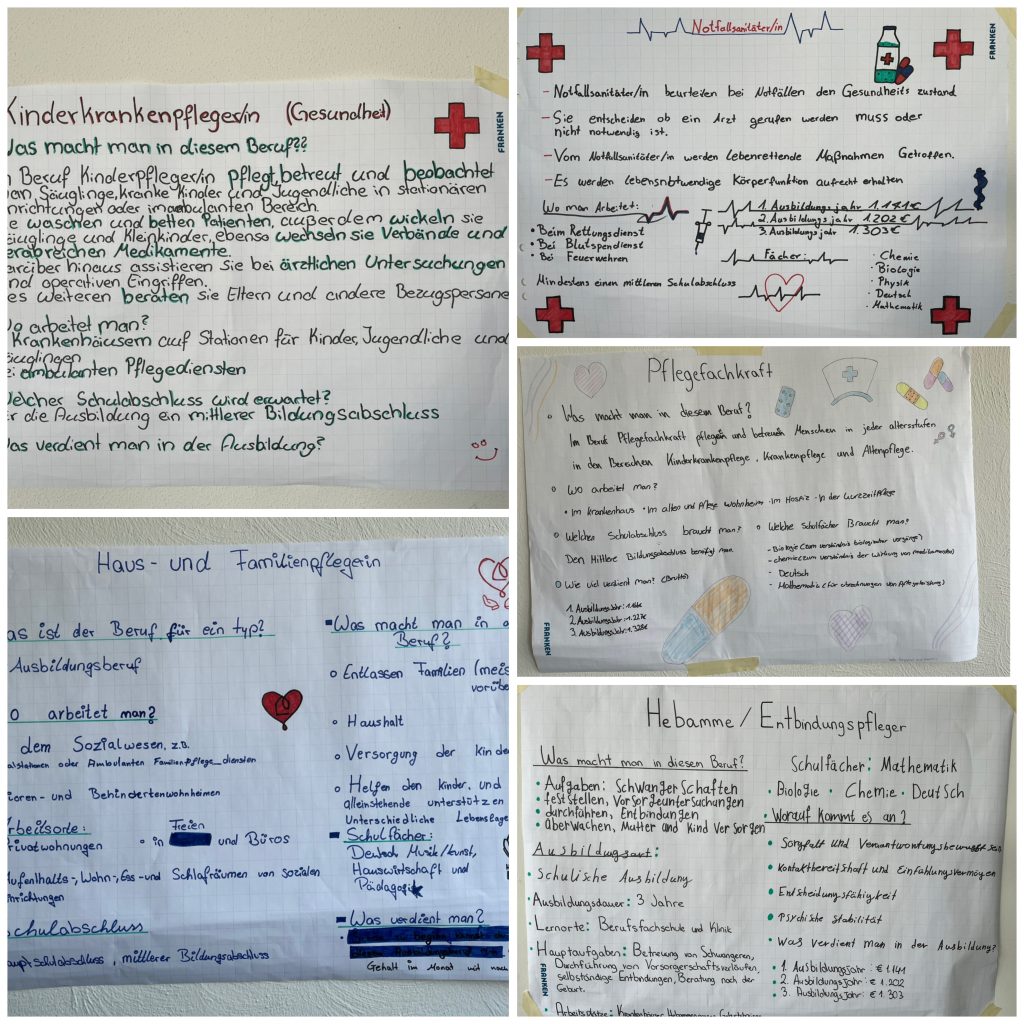 Kinderkrankenpfleger/in (Gesundheit)
Was macht man in diesem Beruf??
Beruf Kinderpfleger/in pflegt, betreut und beobachtet
Säuglinge, kranke Kinder und Jugendliche in stationären
oder im ambulanten Bereich.
waschen und betten Patienten, außerdem wickeln sie
und Kleinkinder, ebenso wechseln sie Verbände und
Medikamente.
hinaus assistieren Sie bei ärztlichen Untersuchungen
und operativen Eingriffen.
des weiteren beraten sie Eltern und andere Bezugspersone
Wo arbeitet man?
Krankenhäusern auf Stationen für Kinder, Jugendliche und
ambulanten Pflegediensten
Welcher Schulabschluss wird erwartet?
die Ausbildung ein mittlerer Bildungsabschluss
Was verdient man in der Ausbildung?
FRANKEN
Notfallsanitäter/in
FRANKEN
- Notfallsanitäter/in beurteilen bei Notfällen den Gesundheits zustand
- Sie entscheiden ob ein Arzt gerufen werden muss oder
nicht notwendig ist.
- Vom Notfallsanitäter/in werden Lebenrettende Maßnahmen Getroffen.
- Es werden lebensnotwendige Körperfunktion aufrecht erhalten
Wo man Arbeitet:
• Beim Rettungsdienst
• Bei Blutspendienst
• Bei Feuerwehren
Mindestens einen mittleren Schulabschluss
1. Ausbildungsjahr 1.141€
2. Ausbildungsjahr 1.202€
3. Ausbildungsjahr 1.303€
Fächer:
• Chemie
• Biologie
• Physik
• Deutsch
• Mathematik
Pflegefachkraft
Was macht man in diesem Beruf?
Im Beruf Pflegefachkraft pflegen und betreuen Menschen in jeder altersstufen
in den Bereichen Kinderkrankenpflege, Krankenpflege und Altenpflege.
Wo arbeitet man?
• Im krankenhaus • Im alten und Pflege wohnheim • Im Hospiz • In der kurzzeitpflege
Welchen Schulabschluss braucht man?
Den Mittlere Bildungsabschluss benötigt man
Wie viel verdient man? (Brutto)
1. Ausbildungsjahr:
2. Ausbildungsjahr: 1.227€
3. Ausbildungsjahr: 1.328€
Welche Schulfächer Braucht man?
- Biologie (zum verständnis biologischer vorgänge)
- chemie (zum verständnis der wirkung von medikamente)
- Deutsch
- Mathematik (für abrechnungen von Pflegeleistung)
FRANKEN
Haus- und Familienpflegerin
as ist der Beruf für ein typ?
Ausbildungsberuf
o arbeitet man?
dem Sozialwesen, z.B.
oder Ambulanten Familienpflege_diensten
ioren- und Behindertenwohnheimen
rbeitsorte:
rivatwohnungen
o in Freien und Büros
ufenthalts-, Wohn-, Ess- und Schlafräumen von sozialen
inrichtungen
chulabschluss
auptschulabschluss, mittlerer Bildungsabschluss
Was macht man in d
Beruf?
o Entlassen Familien (meis
vorübe
o Haushalt
o Versorgung der kinde
o Helfen den kinder, und
alleinstehende unterstützen
Unterschiedliche Lebenslage
Schulfächer:
Deutsch, Musik/kunst,
Hauswirtschaft und
Pädagogik
Was verdient man?
Gehalt im Monat
Hebamme / Entbindungspfleger
Was macht man in diesem Beruf?
• Aufgaben: Schwangerschaften
• feststellen, Vorsorgeuntersuchungen
• durchführen, Entbindungen
• überwachen, Mutter und Kind versorgen
Ausbildungsart:
• Schulische Ausbildung
• Ausbildungsdauer: 3 Jahre
• Lernorte: Berufsfachschule und Klinik
• Hauptaufgaben: Betreuung von Schwangeren,
Durchführung von
selbständige Entbindungen, Beratung nach der
Geburt.
FRANKEN
Schulfächer: Mathematik
• Biologie • Chemie • Deutsch
• Worauf kommt es an?
• Sorgfalt und Verantwortungsbewusstsein
• Kontaktbereitschaft und Einfühlungsvermögen
• Entscheidungsfähigkeit
• Psychische Stabilität
• Was verdient man in der Ausbildung?
• 1. Ausbildungsjahr: € 1.141
• 2. Ausbildungsjahr: € 1.202
• 3. Ausbildungsjahr: € 1.303